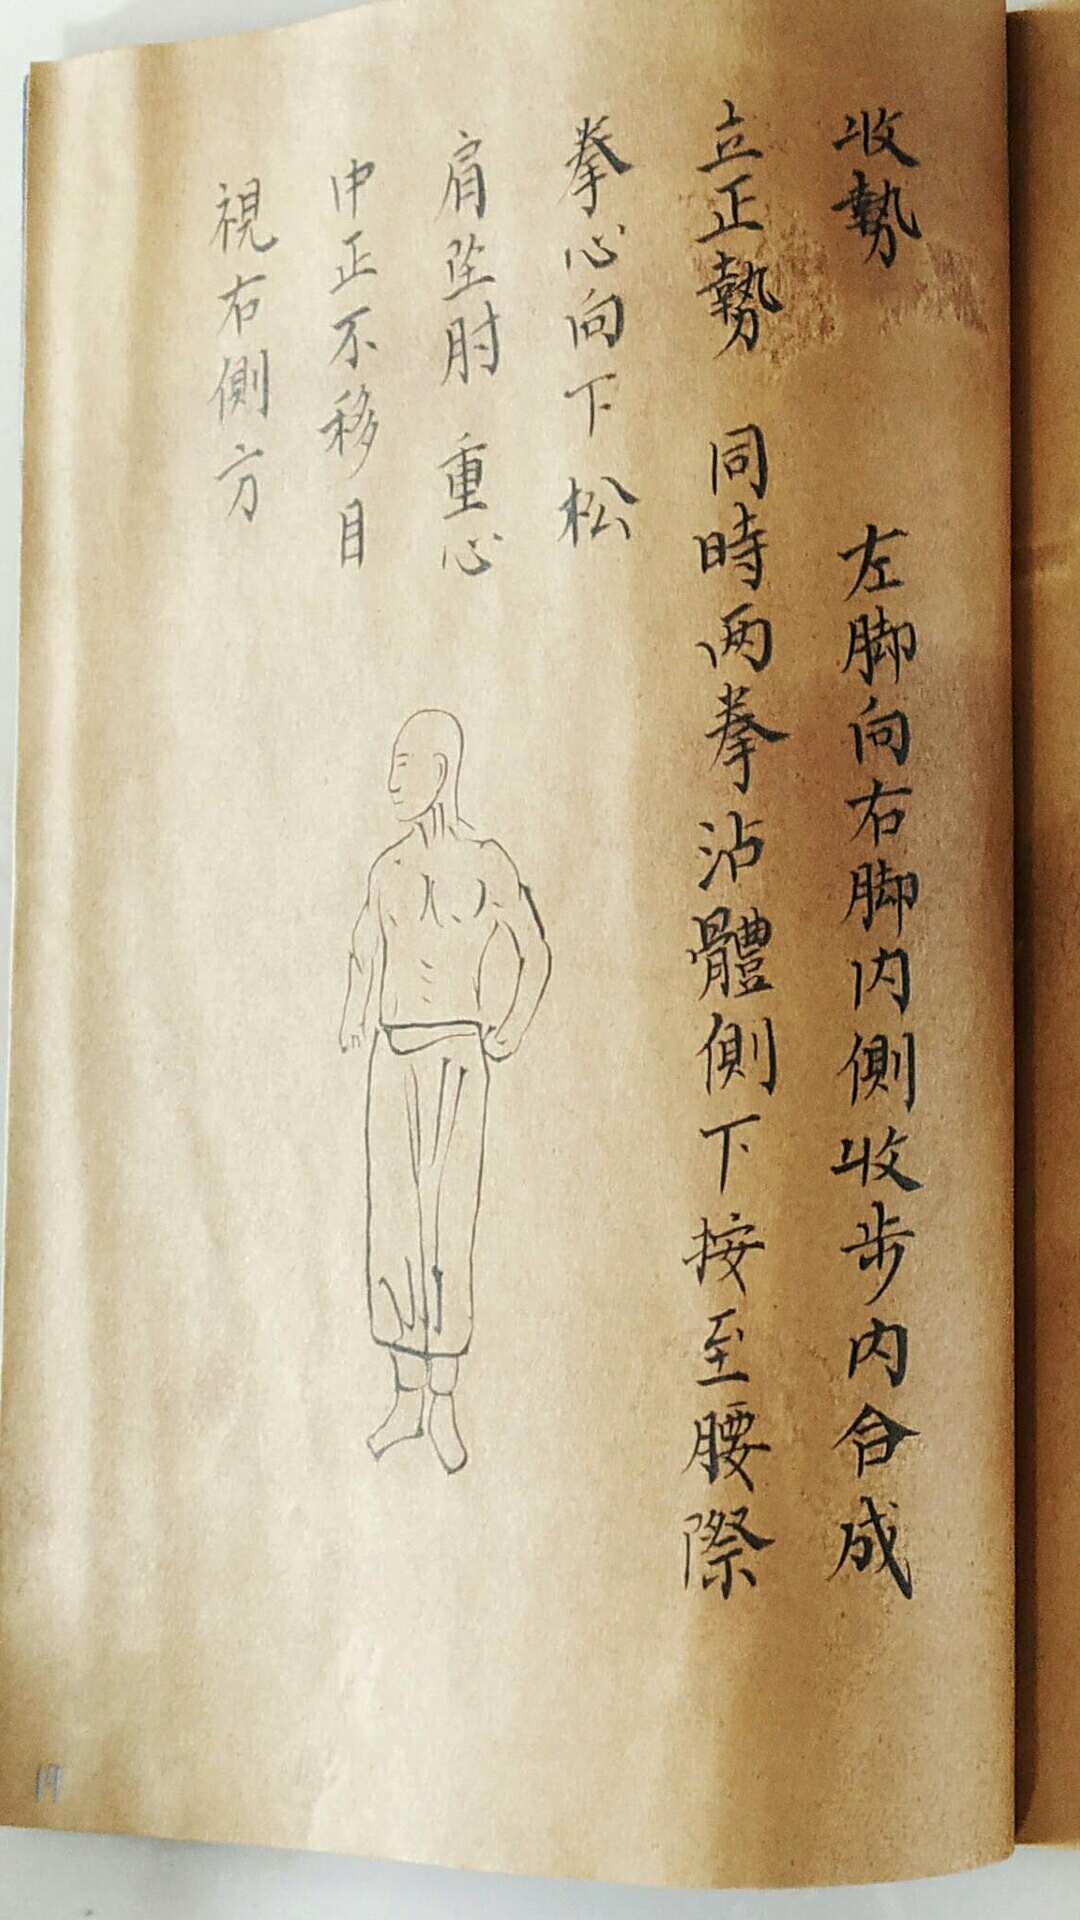 收勢 左脚向右脚内側收步内合成
立正勢 同時两拳沾體側下按至腰際
拳心向下松
肩坠肘 重心
中正不移目
視右側方